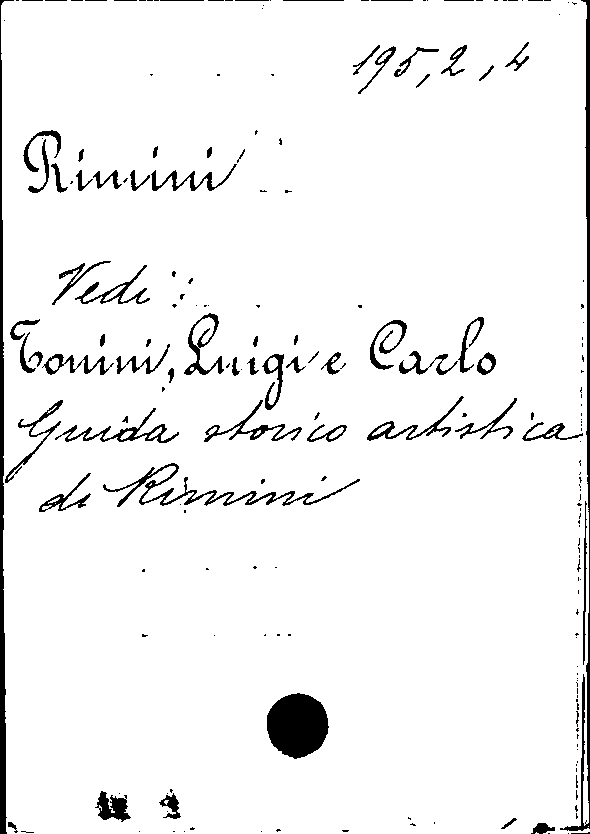 195,2,4
Rimini
Vedi:
Tonini, Luigi e Carlo
Guida storico artistica
di Rimini